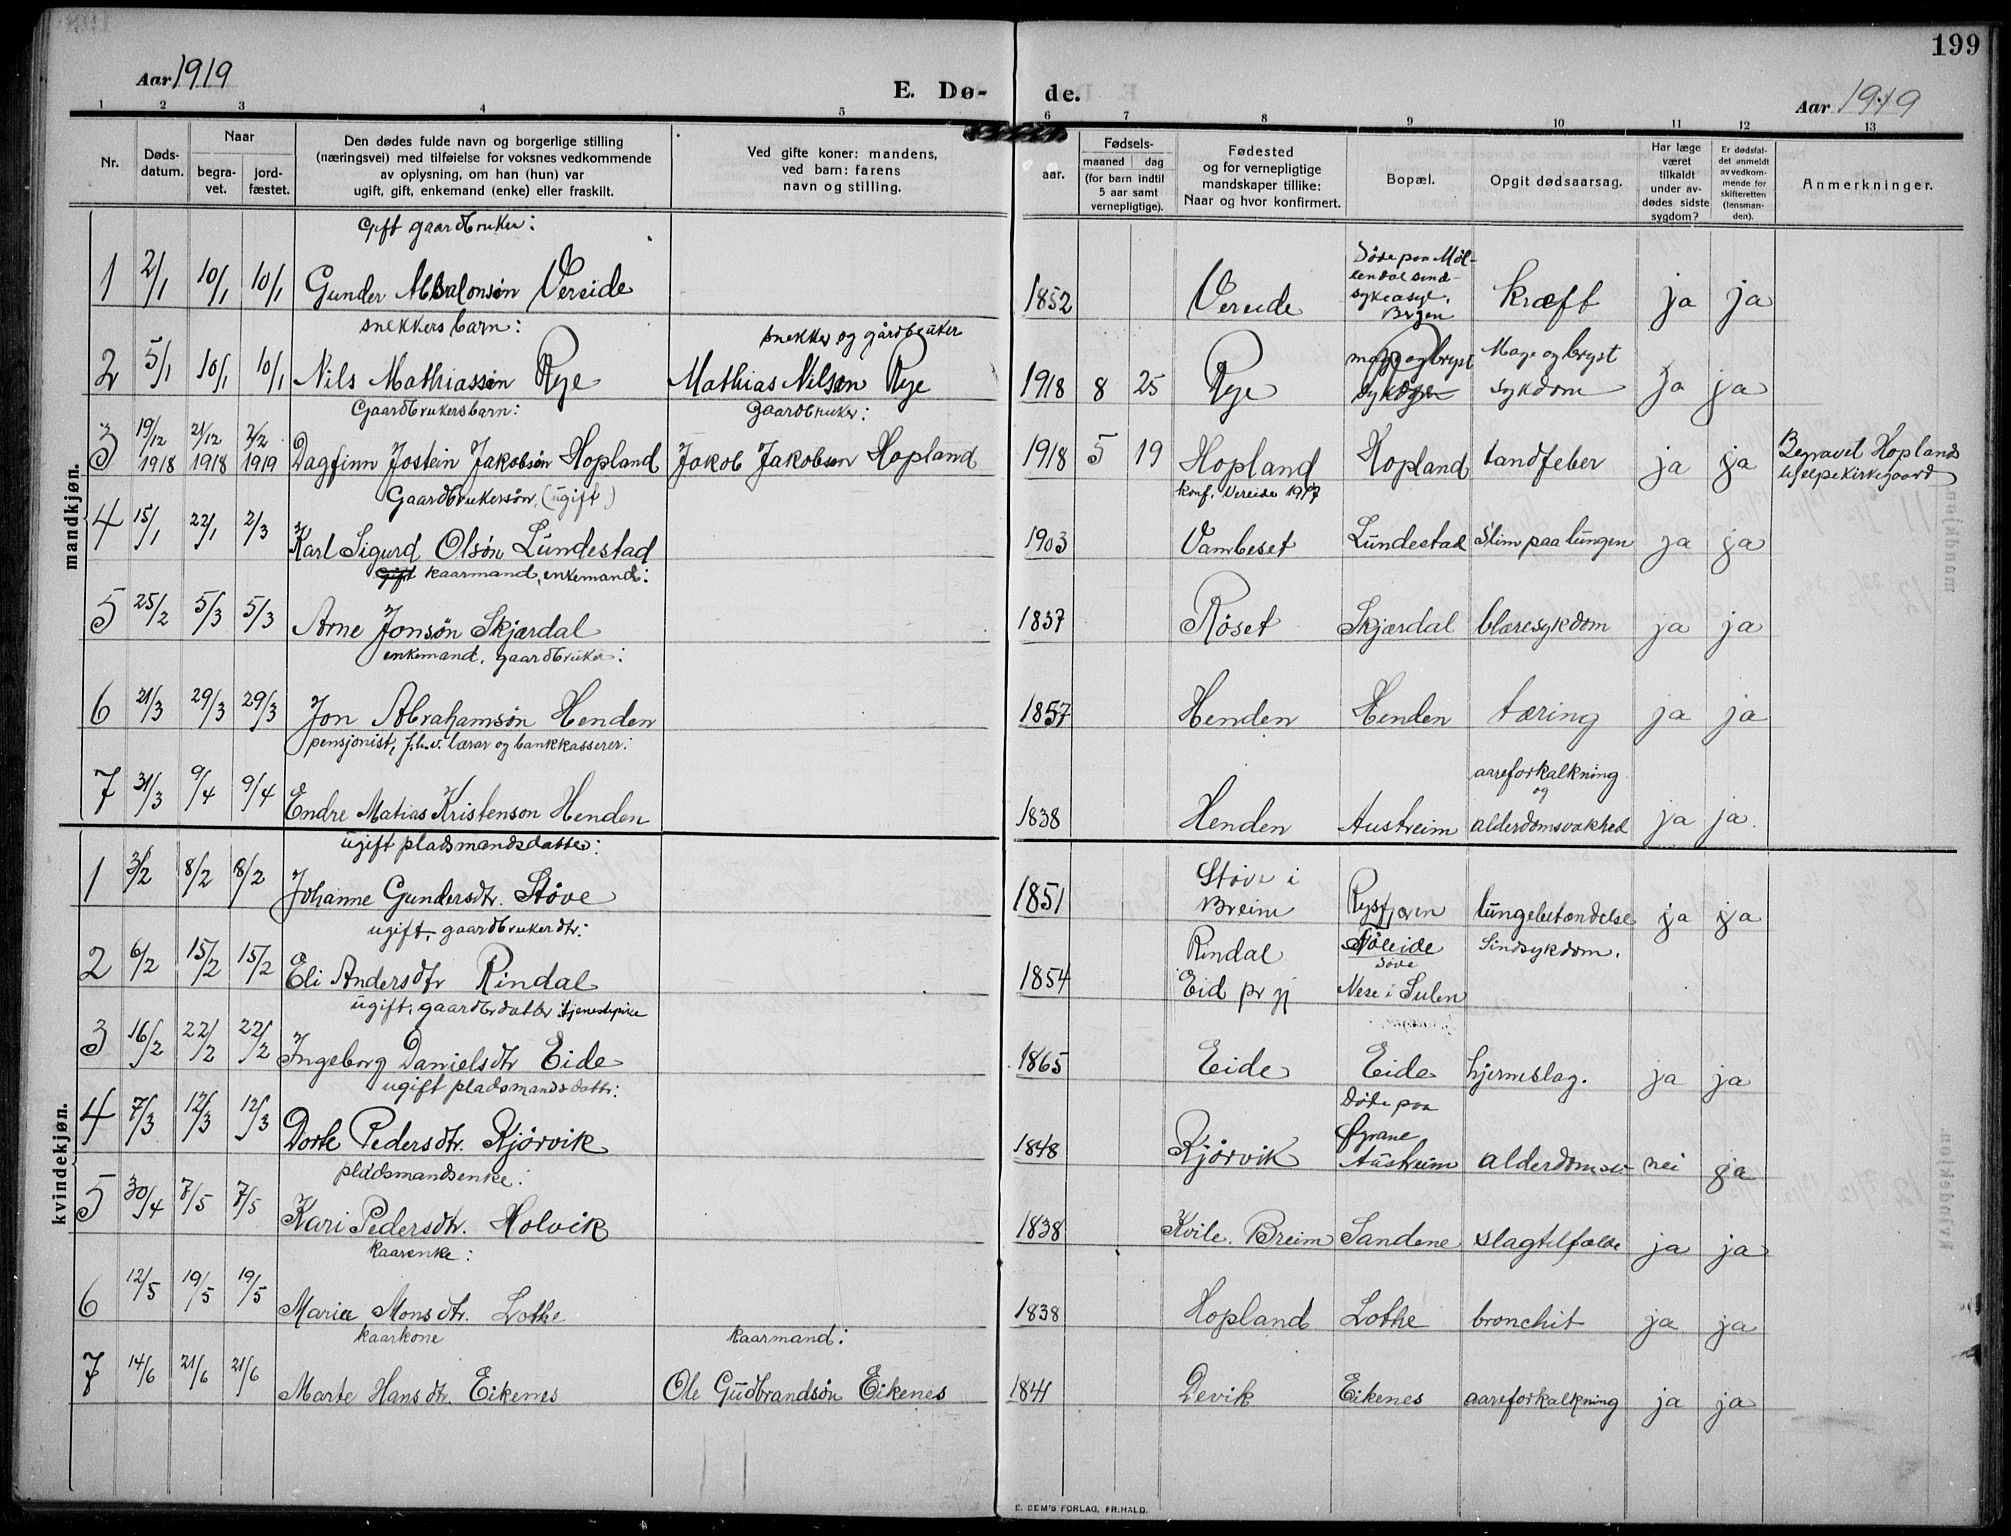 199
Aar 1919
E. Dø- de.
Aar 1919
1 2 3 4 5 6 7 8 9 10 11 12 13
Nr.
Døds-
datum.
Naar
begra-
vet.
jord-
fæstet.
Den dødes fulde navn og borgerlige stilling
(næringsvei) med tilføielse for voksnes vedkommende
av oplysning, om han (hun) var
ugift, gift, enkemand (enke) eller fraskilt.
Ved gifte koner: mandens,
ved barn: farens
navn og stilling.
aar.
Fødsels-
maaned dag
(for barn indtil
5 aar samt
vernepligtige).
Fødested
og for vernepligtige
mandskaper tillike:
Naar og hvor konfirmert.
Bopæl.
Opgit dødsaarsag.
Har læge
været
tilkaldt
under av-
dødes sidste
sygdom?
Er dødsfal-
det anmeldt
av vedkom-
mende for
skifteretten
(lensman-
den).
Anmerkninger.
mandkjøn.
Gift gaardbruker:
1 2/1 10/1 10/1 Gunder Absalonsøn Vereide 1852 Vereide Døde paa Møl-
lendal sind-
sykeasyl.
Bergen kræft ja ja
snekkers barn: snekker og gårdbruker
2 5/1 10/1 10/1 Nils Mathiassøn Rye Mathias Nilsøn Rye 1918 8 25 Rye Mage og bryst
sykdom ja ja
Gaardbrukersbarn: Gaardbruker:
3 19/12 1918 21/12 1918 2/2 1919 Dagfinn Jostein Jakobsøn Hopland Jakob Jakobsøn Hopland 1918 5 19 Hopland Hopland tandfeber ja ja Begravet Hoplands
hjelpekirkegaard
Gaardbrukersøn, (ugift) konf. Vereide 1917
4 15/1 22/1 2/3 Karl Sigurd Olsøn Lundestad 1903 Vambeset Lundestad Slim paa lungen ja ja
gift kaarmand, enkemand:
5 25/2 5/3 5/3 Arne Jonsøn Skjærdal 1837 Røset Skjærdal blæresykdom ja ja
enkemand, gaardbruker:
6 21/3 29/3 29/3 Jon Abrahamsøn Henden 1857 Henden Henden tæring ja ja
pensjonist, f.h.v. lærar og bankkasserer:
7 31/3 9/4 9/4 Endre Matias Kristenson Henden 1838 Henden Austreim aareforkalkning
og
alderdomsvakhed ja ja.
kvindekjøn.
ugift pladsmandsdatter:
1 3/2 8/2 8/2 Johanne Gundersdtr. Støve 1851 Støve i
Breim Rysfjæren lungebetændelse ja ja
ugift, gaardbrukerdtr:
2 6/2 15/2 15/2 Eli Andersdtr Rindal 1854 Rindal
Eid prgj Nese i Sulen Sindsykdom.
ugift, gaardbrdatter tjenestepike
3 16/2 22/2 22/2 Ingeborg Danielsdtr Eide 1865 Eide Eide hjerneslag. ja ja
ugift pladsmandsdatter:
4 7/3 12/3 12/3 Dorte Pedersdtr. Kjørvik 1848 Kjørvik Døde paa
Øyrane
Austreim alderdomsv nei ja
pladsmandsenke:
5 30/4 7/5 7/5 Kari Pedersdtr. Holvik 1838 Kvile. Breim Sandene slagtilfælde ja ja
kaarenke:
6 12/5 19/5 19/5 Maria Monsdtr. Lothe 1838 Hopland Lothe bronchit ja ja
kaarkone kaarmand:
7 14/6 21/6 21/6 Marte Hansdtr. Eikenes Ole Gudbrandsøn Eikenes 1841 Devik Eikenes aareforkalkning ja ja
E. SEM'S FORLAG, FR.HALD.